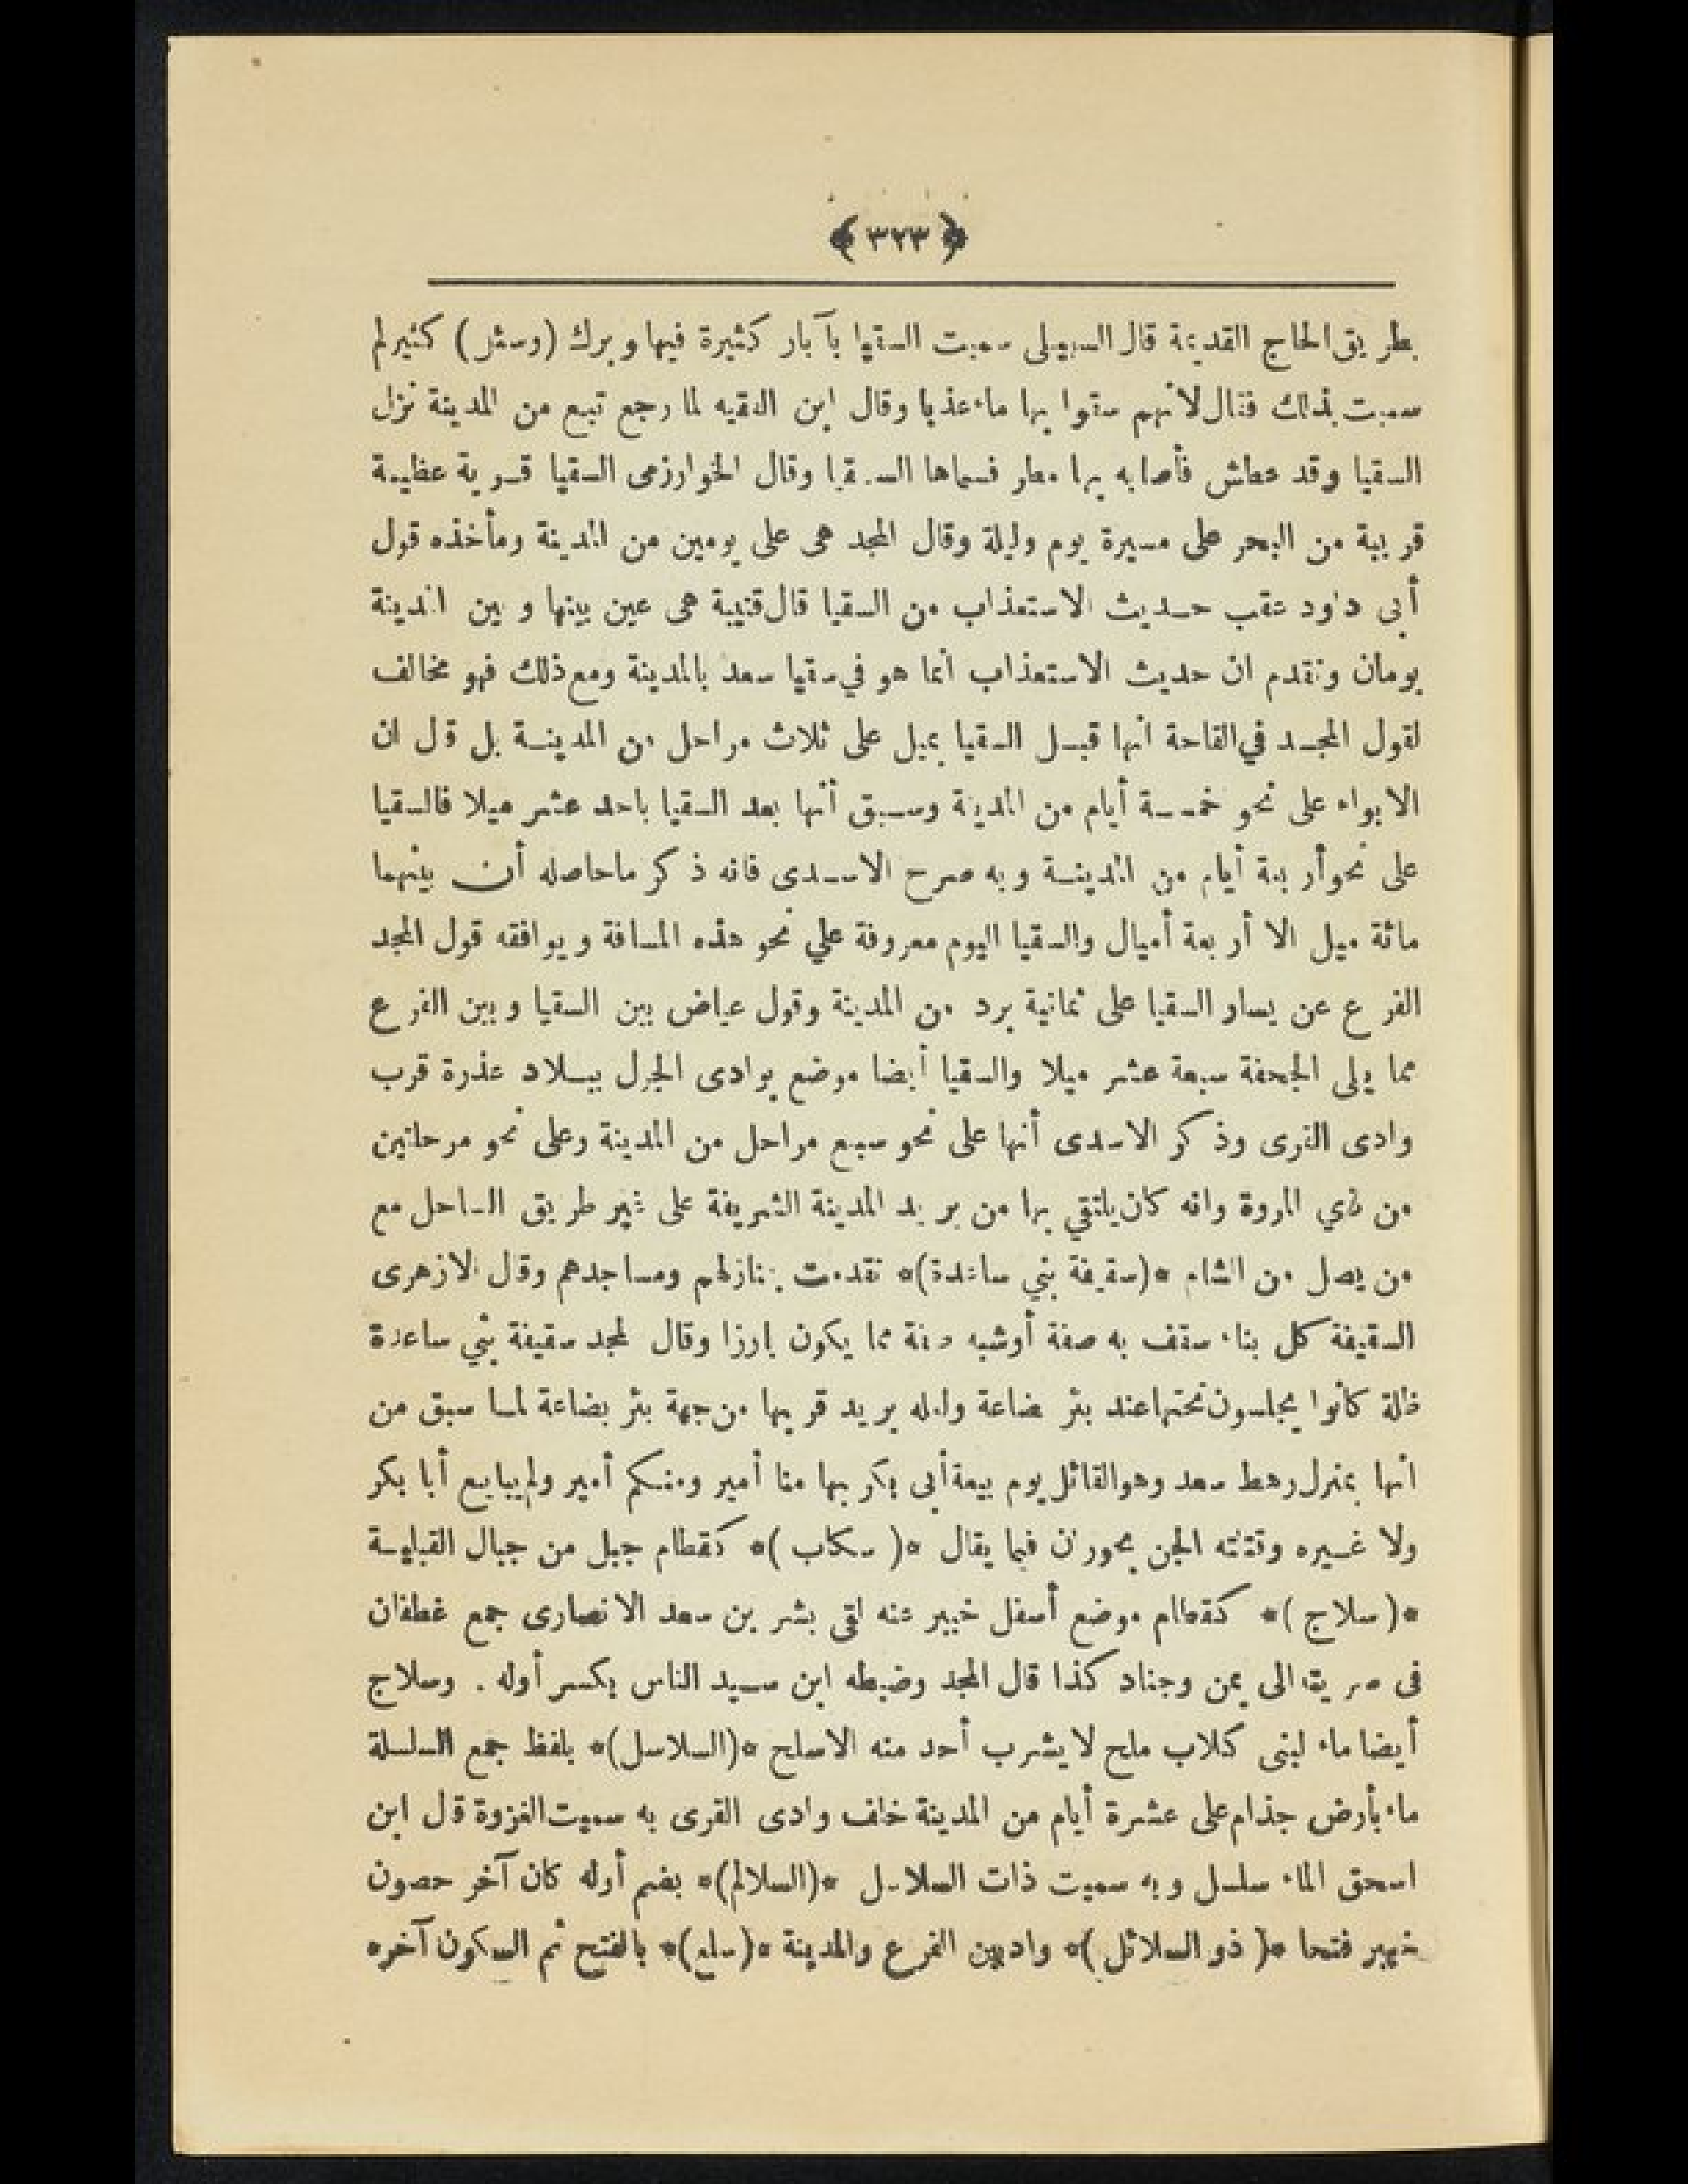 ﴿ ٣٢٣ ﴾
بطريق الحاج القديمة قال السهيلى سميت السقيا بآبار كثيرة فيها وبرك (وسئل) كثير لم
سميت بذلك فقال لأنهم سقوا بها ماء عذبا وقال ابن الفقيه لما رجع تبع من المدينة نزل
السقيا وقد عطش فأصابه بها مطر فسماها السقيا وقال الخوارزمى السقيا قرية عظيمة
قريبة من البحر على مسيرة يوم وليلة وقال المجد هى على يومين من المدينة ومأخذه قول
أبى داود عقب حديث الاستعذاب من السقيا قال قتيبة هى عين بينها وبين المدينة
يومان وتقدم ان حديث الاستعذاب انما هو في سقيا سعد بالمدينة ومع ذلك فهو مخالف
لقول المجد في القاحة انها قبل السقيا بميل على ثلاث مراحل من المدينة بل قال ان
الابواء على نحو خمسة أيام من المدينة وسبق أنها بعد السقيا باحد عشر ميلا فالسقيا
على نحو أربعة أيام من المدينة وبه صرح الاسدى فانه ذكر ما حاصله أن بينهما
مائة ميل الا أربعة أميال والسقيا اليوم معروفة علي نحو هذه المسافة ويوافقه قول المجد
الفرع عن يسار السقيا على ثمانية برد من المدينة وقول عياض بين السقيا وبين الفرع
مما يلى الجحفة سبعة عشر ميلا والسقيا أيضا موضع بوادى الجزل ببلاد عذرة قرب
وادى القرى وذكر الاسدى أنها على نحو سبع مراحل من المدينة وعلى نحو مرحلتين
من ذي المروة وانه كان يلتقي بها من يريد المدينة الشريفة على غير طريق الساحل مع
من يصل من الشام *(سقيفة بني ساعدة)* تقدمت بمنازلهم ومساجدهم وقال الازهرى
السقيفة كل بناء سقف به صفة أوشبه صفة مما يكون بارزا وقال المجد سقيفة بني ساعدة
ظلة كانوا يجلسون تحتها عند بئر بضاعة ولعله يريد قربها من جهة بئر بضاعة لما سبق من
انها بمنزل رهط سعد وهو القائل يوم بيعة أبى بكر بها منا أمير ومنكم أمير ولم يبايع أبا بكر
ولا غيره وقتلته الجن بحوران فيما يقال *( سكاب )* كقطام جبل من جبال القبلية
*( سلاج )* كقطام موضع أسفل خيبر عنه لقى بشر بن سعد الانصارى جمع غطفان
فى سريته الى يمن وجناد كذا قال المجد وضبطه ابن سيد الناس بكسر أوله . وسلاج
أيضا ماء لبنى كلاب ملح لا يشرب أحد منه الاسلح *(السلاسل)* بلفظ جمع السلسلة
ماء بأرض جذام على عشرة أيام من المدينة خلف وادى القرى به سميت الغزوة قال ابن
اسحق الماء سلسل وبه سميت ذات السلاسل *(السلالم)* بضم أوله كان آخر حصون
خيبر فتحا *( ذو السلائل )* واد بين الفرع والمدينة *(سلع)* بالفتح ثم السكون آخره